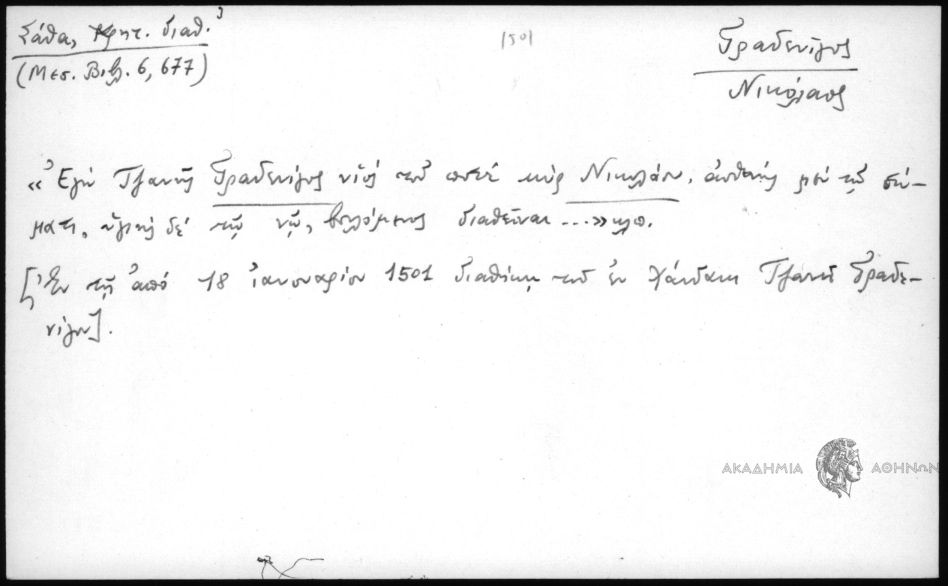 Σάθα, Κρητ. διαθ.
(Μεσ. Βιβλ. 6, 677)
1501
Γραδενῖγος
Νικόλαος
«Ἐγὼ Τζανῆς Γραδενίγος υἱὸς τοῦ ποτὲ κὺρ Νικολάου, ἀσθενὴς μὲν τῷ σώ-
ματι, ὑγιὴς δὲ τῷ νῷ, βουλόμενος διαθεῖναι...» κλπ.
[Ἐν τῇ ἀπὸ 18 ἰανουαρίου 1501 διαθήκῃ τοῦ ἐν Χάνδακι Τζανῆ Γραδε-
νίγου].
ΑΚΑΔΗΜΙΑ ΑΘΗΝΩΝ